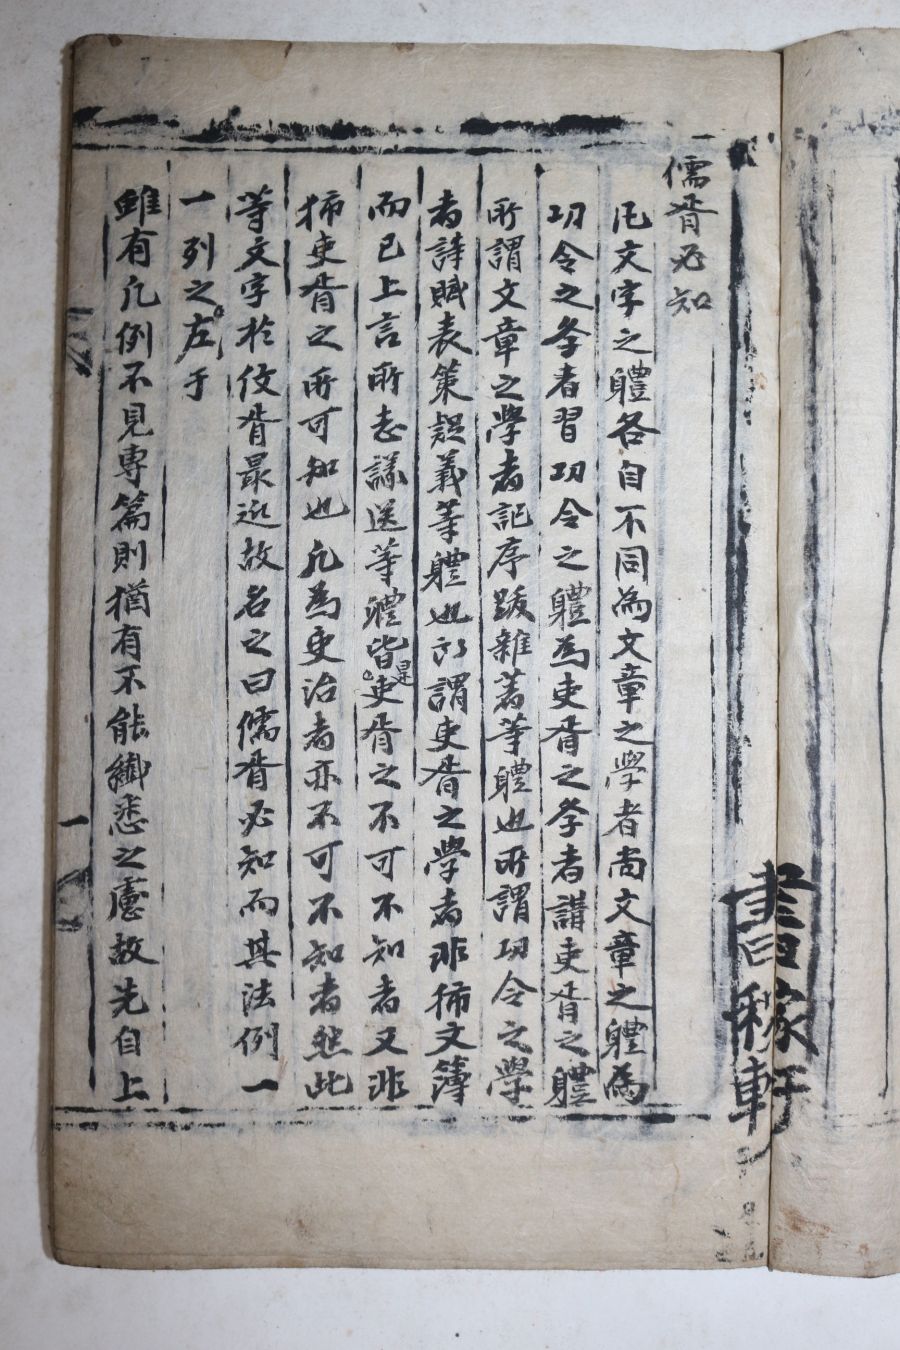 儒胥必知
凡文字之軆各自不同為文章之學者尚文章之軆為
功令之孝者習功令之軆為吏胥之孝者講吏胥之軆
所謂文章之學者記序跋雜著等軆也所謂功令之學
者詩賦表策疑義等軆也所謂吏胥之學者非徒文簿
而已上言所志議送等軆皆是吏胥之不可不知者又非
徒吏胥之所可知也凡為吏治者亦不可不知者然此
等文字於伩胥最近故名之曰儒胥必知而其法例一
一列之左于
雖有凡例不見專篇則猶有不能纖悉之慮故先自上
一
書稼軒